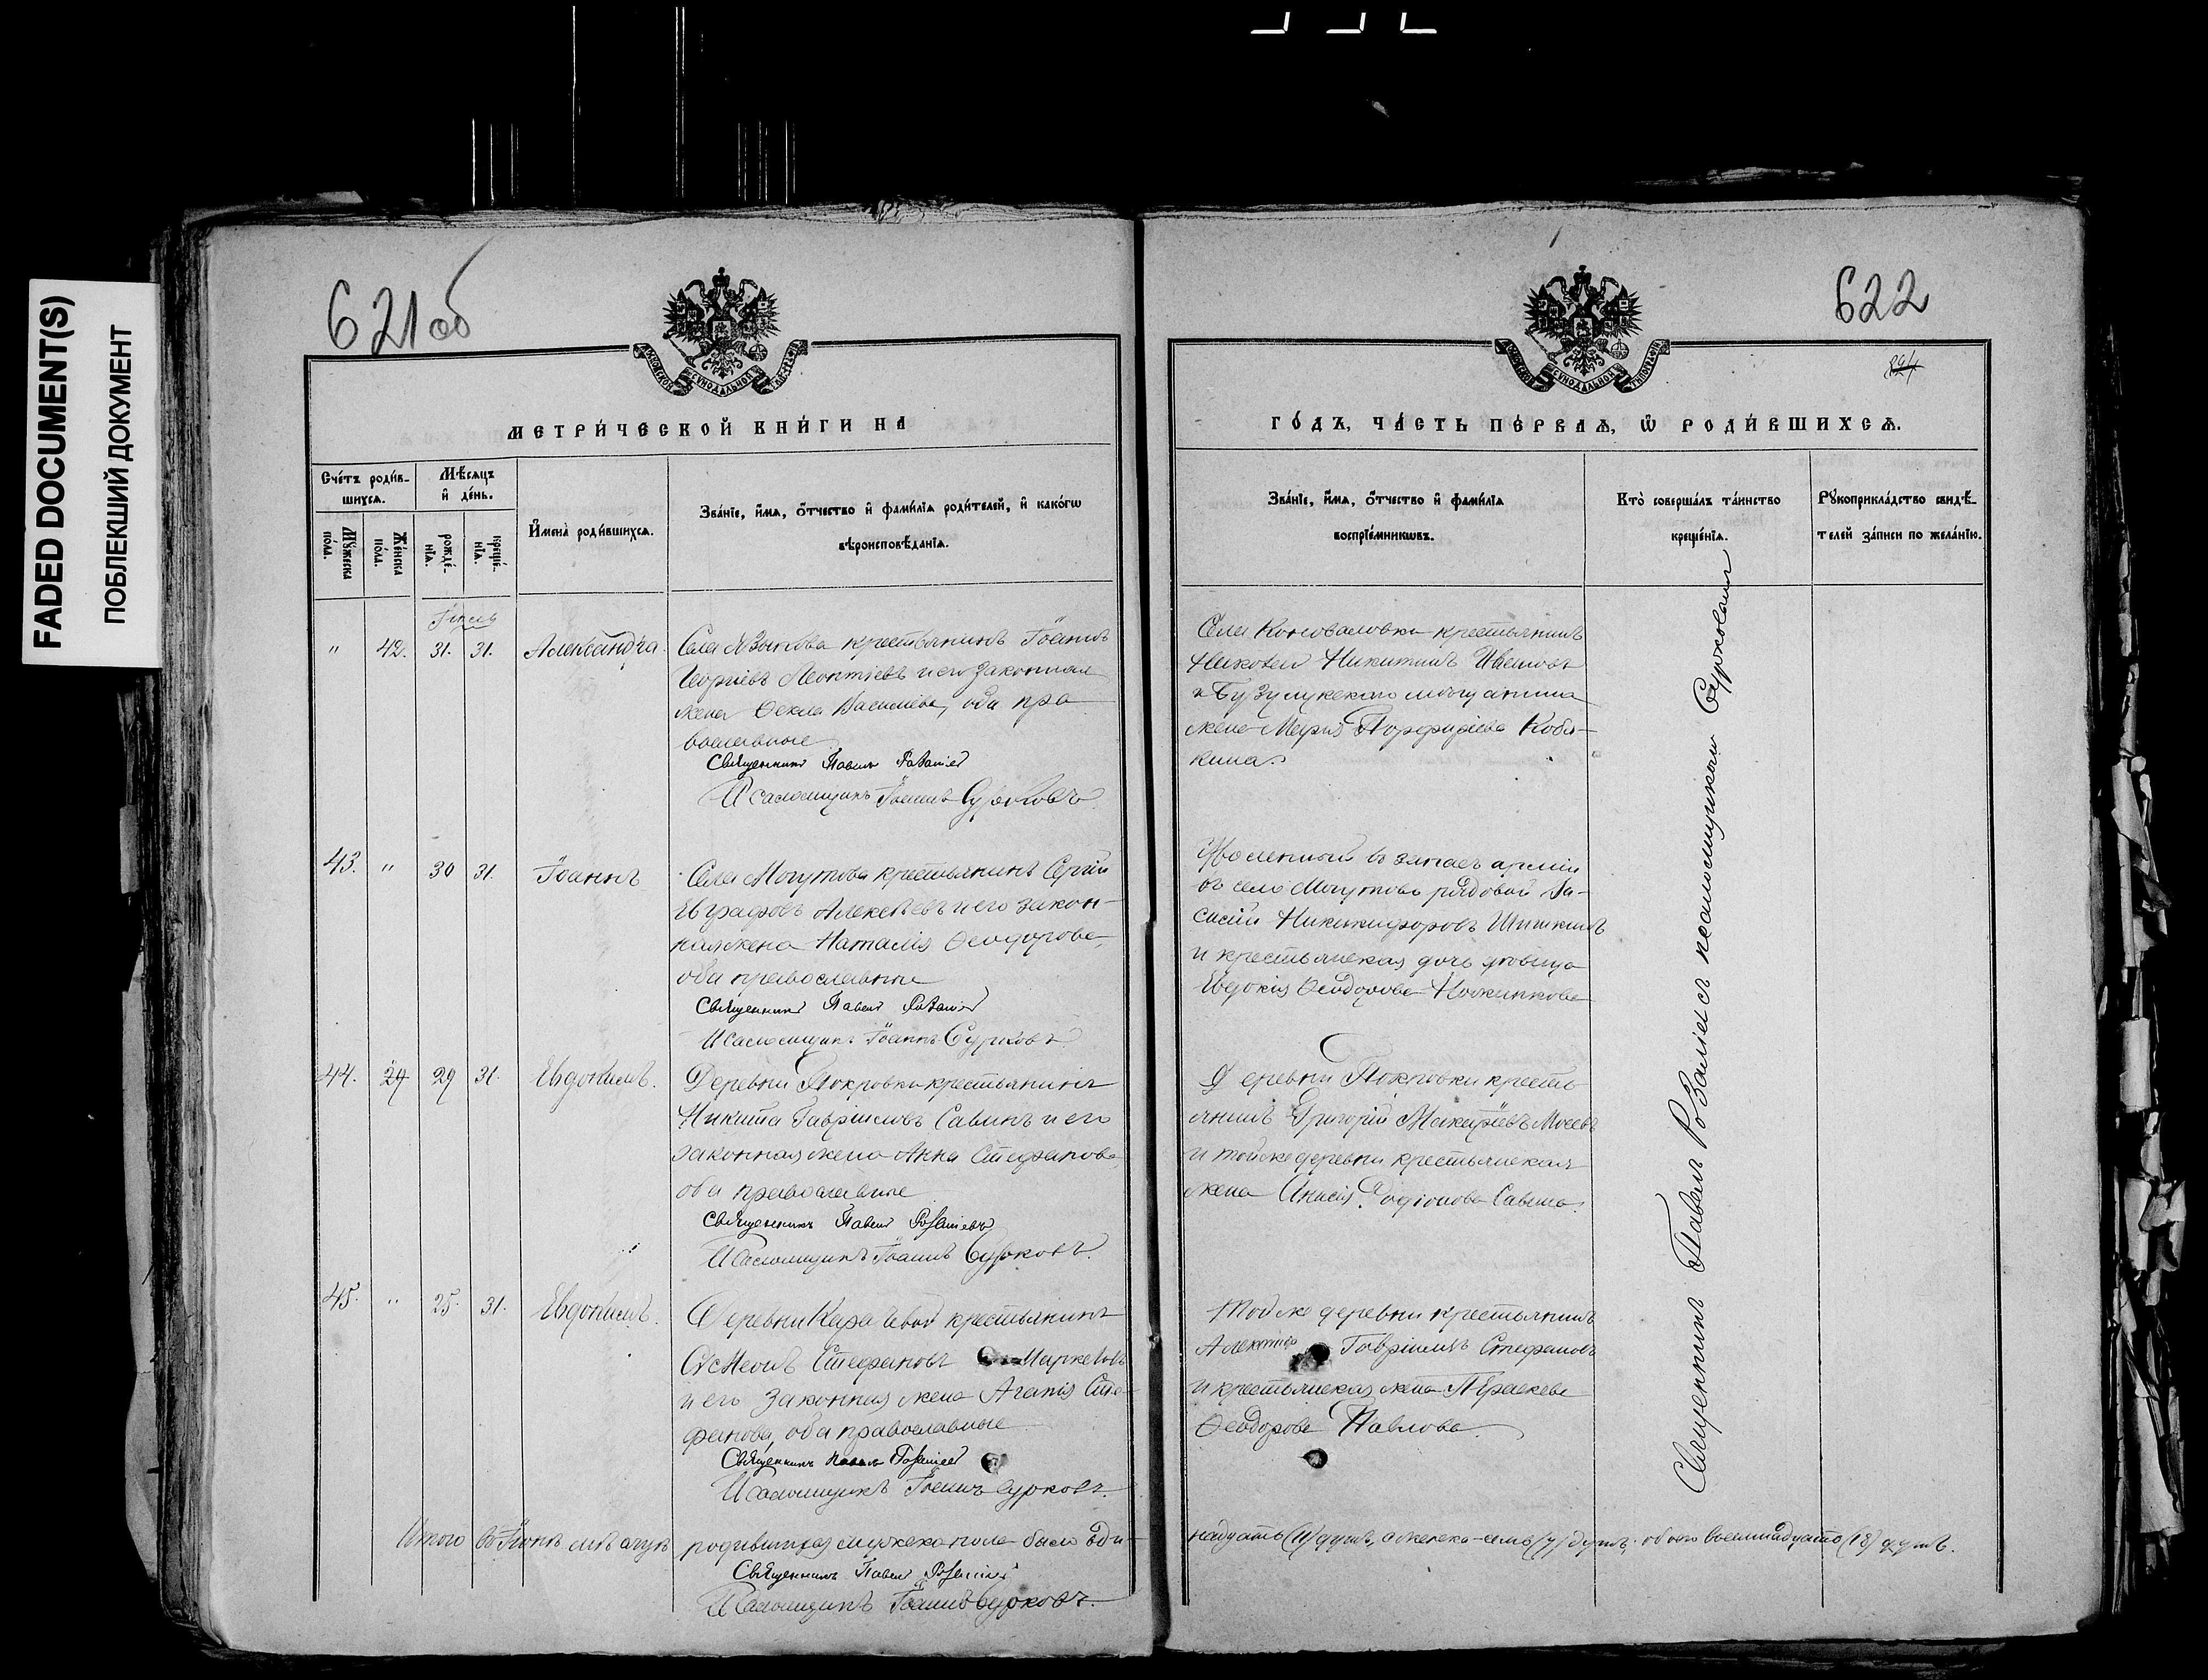 FADED DOCUMENT(S)
ПОБЛЕКШИЙ ДОКУМЕНТ
621об
МЕТРИ́ЧЕСКОЙ КНИ́ГИ НА
Сче́тъ роди́в-
шихся.
Мѣ́сяцъ
и҆ де́нь.
Му́жеска по́ла.
Же́нска по́ла.
рожде́-
нїѧ.
креще́-
нїѧ.
И҆мена̀ роди́вшихсѧ.
Зва́нїе, и҆́мѧ, ѻ҆́тчество и҆ фами́лїѧ роди́телей, и҆ како́гѡ
вѣроисповѣ́данїѧ.
" 42. 31. 31. Александра.
Села Языкова крестьянинъ Іоаннъ
Георгіевъ Леонтіевъ и его законная
жена Ѳекла Василіева, оба пра-
вославные
Священникъ Павелъ
Псаломщикъ Іоаннъ Сурковъ
43. " 30 31. Іоаннъ
Села Могутова крестьянинъ Сергій
Евграфовъ Алексѣевъ и его закон-
ная жена Наталія Ѳеодорова,
оба православные
Священникъ Павелъ
Псаломщикъ Іоаннъ Сурковъ
44. 29 31. Евдокимъ.
Деревни Покровки крестьянинъ
Никита Гавріиловъ Савинъ и его
законная жена Анна Стефанова,
оба православные
Священникъ Павелъ
Псаломщикъ Іоаннъ Сурковъ.
45. " 25. 31. Евдокимъ.
Деревни крестьянинъ
Стефановъ Маркеловъ
и его законная жена Агапія Сте-
фанова, оба православные
Священникъ Павелъ
Псаломщикъ Іоаннъ Сурковъ.
Итого въ мѣсяцѣ родившихся мужеска пола было оди-
Священникъ Павелъ
Псаломщикъ Іоаннъ Сурковъ.
622
ГО́ДЪ, ЧА́СТЬ ПЕ́РВАѦ, Ѡ҆ РОДИ́ВШИХСѦ.
Зва́нїе, и҆́мѧ, ѻ҆́тчество и҆ фами́лїѧ
воспрїе́мникѡвъ.
Кто̀ соверша́лъ та́инство
креще́нїѧ.
Рꙋкоприкла́дство свидѣ́-
телей за́писи по жела́нїю.
Села Коноваловки крестьянинъ
Никитинъ Ивановъ
и Бузулукского мѣщанина
жена Марія Порфиріева Кобя-
кина.
Уволенный въ запасъ арміи
въ село Могутово рядовой Ва-
силій Никифоровъ Шишкинъ
и крестьянская дочь дѣвица
Евдокія Ѳеодорова Ножникова
Деревни Покровки кресть-
янинъ Григорій Макаріевъ Мосевъ
и той же деревни крестьянская
жена Анисія Родіонова Савина.
Той же деревни крестьянинъ
Гавріилъ Стефановъ
и крестьянская жена Параскева
Ѳеодорова Павлова.
Священникъ Павелъ съ псаломщикомъ Сурковымъ
надцать (11) душъ, а женска - семь (7) душъ, обоего восемнадцать (18) душъ.